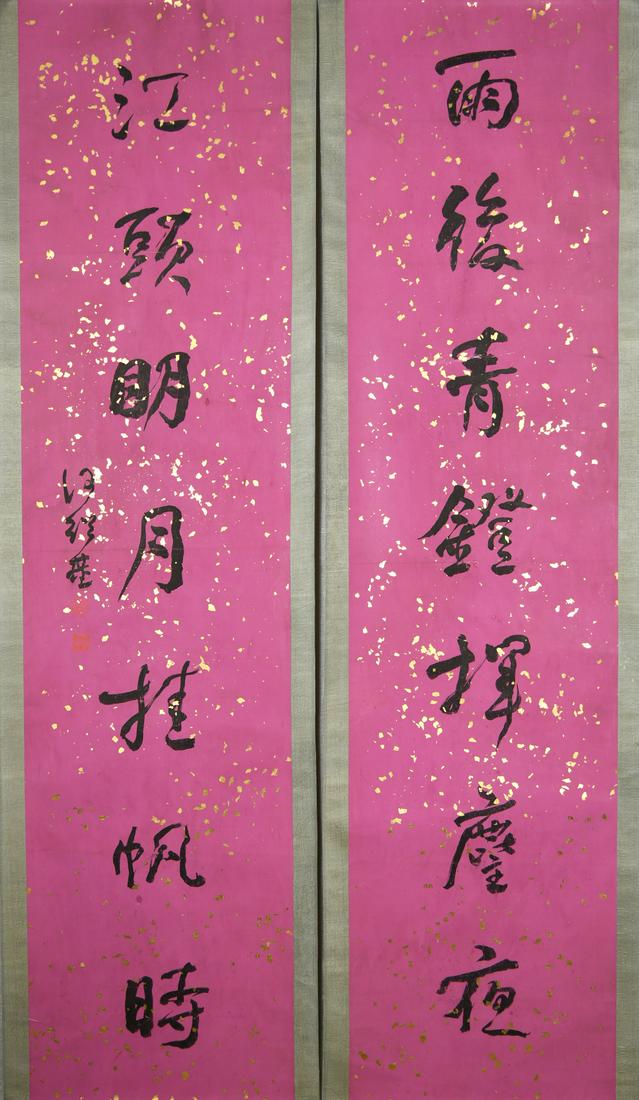 雨後青鐙揮麈夜
江頭明月挂帆時
何紹基